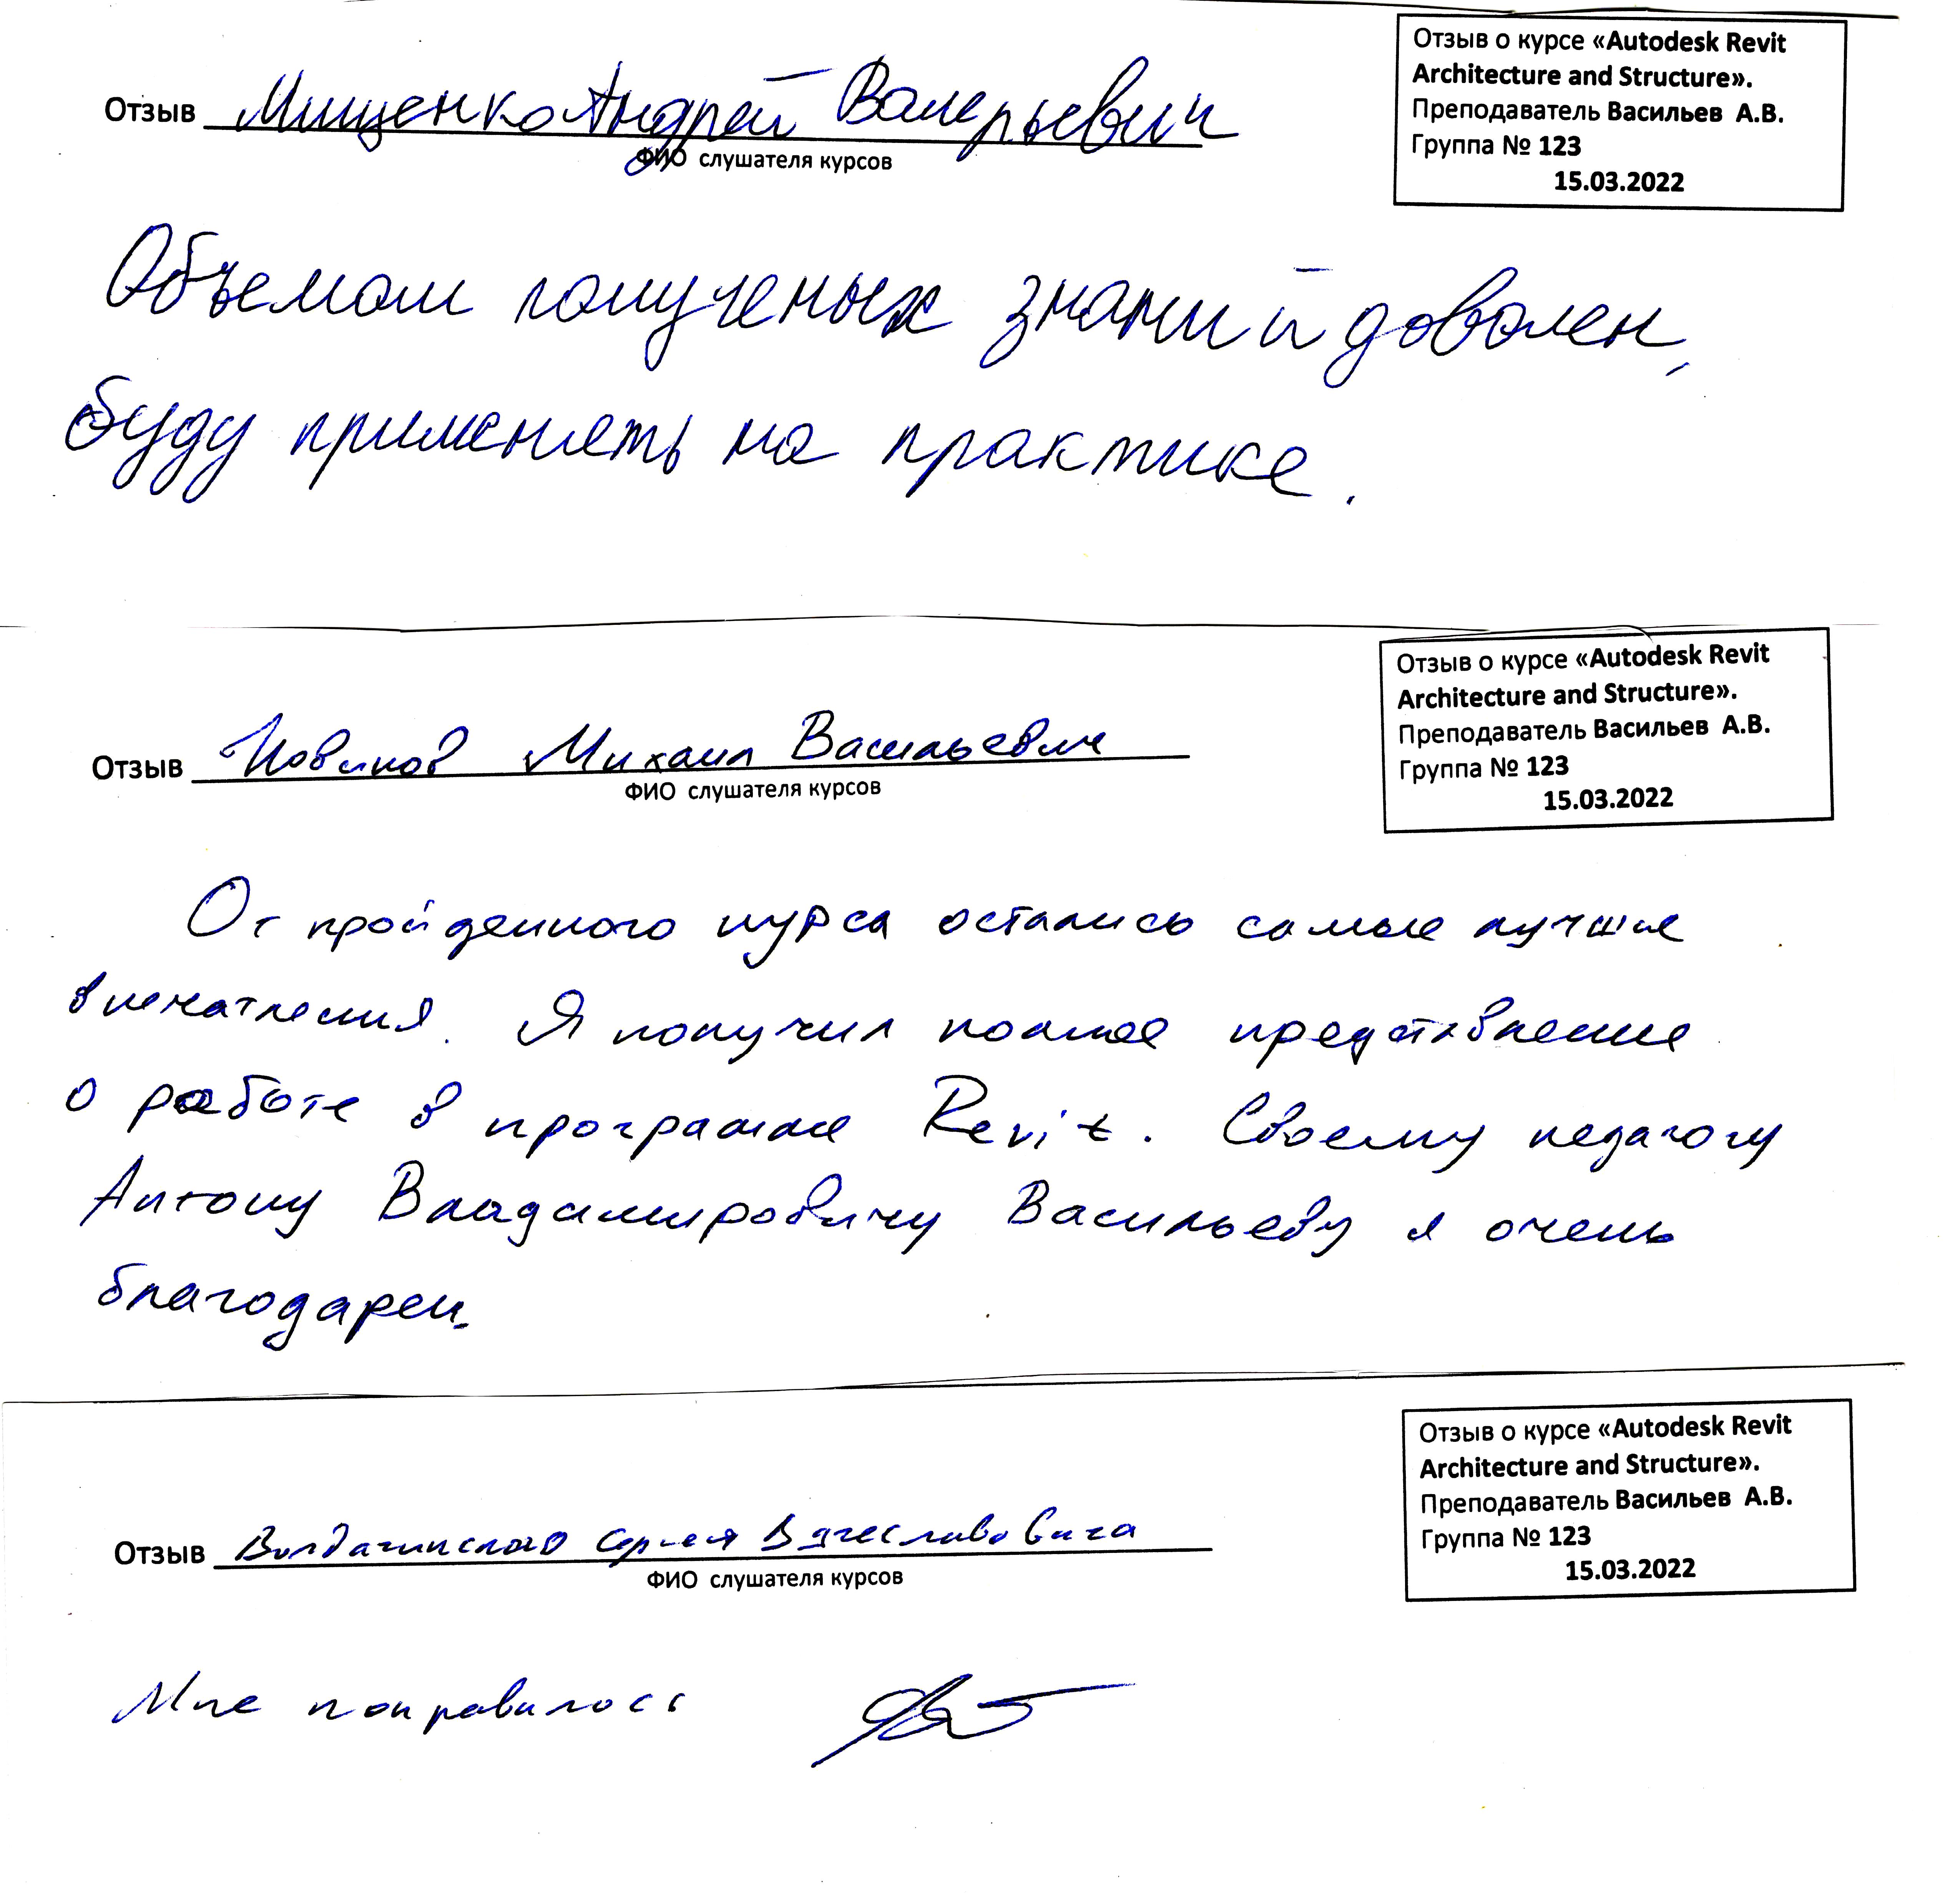 Отзыв о курсе «Autodesk Revit
Architecture and Structure».
Преподаватель Васильев А.В.
Группа № 123
15.03.2022
Отзыв Мищенко Андрей Валерьевич
ФИО слушателя курсов
Объемом полученых знаний доволен,
буду применять на практике.
Отзыв о курсе «Autodesk Revit
Architecture and Structure».
Преподаватель Васильев А.В.
Группа № 123
15.03.2022
Отзыв Новиков Михаил Васильевич
ФИО слушателя курсов
От пройденного курса остались самые лучшие
впечатления. Я получил полное представление
о работе в программе Revit. Своему педагогу
Антону Владимировичу Васильеву я очень
благодарен.
Отзыв о курсе «Autodesk Revit
Architecture and Structure».
Преподаватель Васильев А.В.
Группа № 123
15.03.2022
Отзыв Сергея Вячеславовича
ФИО слушателя курсов
Мне понравилось